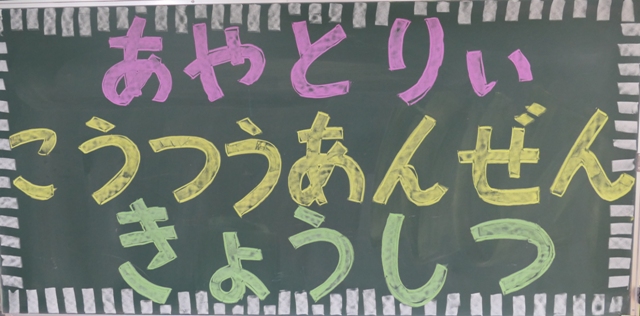 あやとりぃ
こうつうあんぜん
きょうしつ